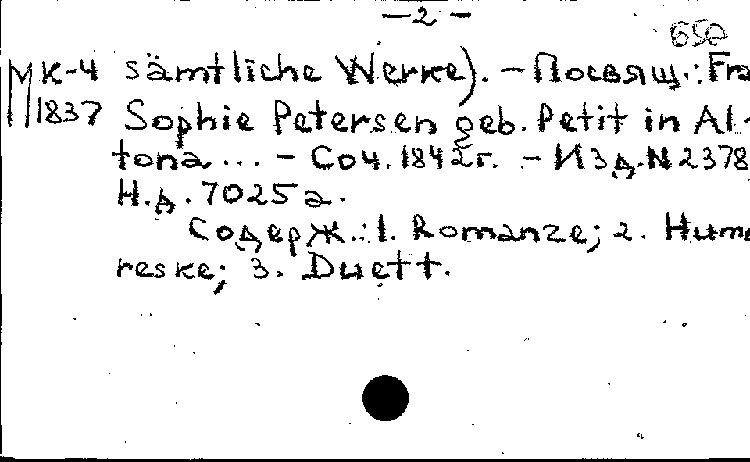 — 2 —
650
МК-4 sämtliche Werke). – Посвящ.: Fra
1837 Sophie Petersen geb. Petit in Al-
tona ... – Соч. 1842 г. – Изд. N 2378
Н.д. 7025 а.
Содерж.: 1. Romanze; 2. Humo
reske; 3. Duett.